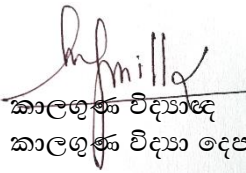 කාලගුණ විද්‍යාඥ
කාලගුණ විද්‍යා දෙප